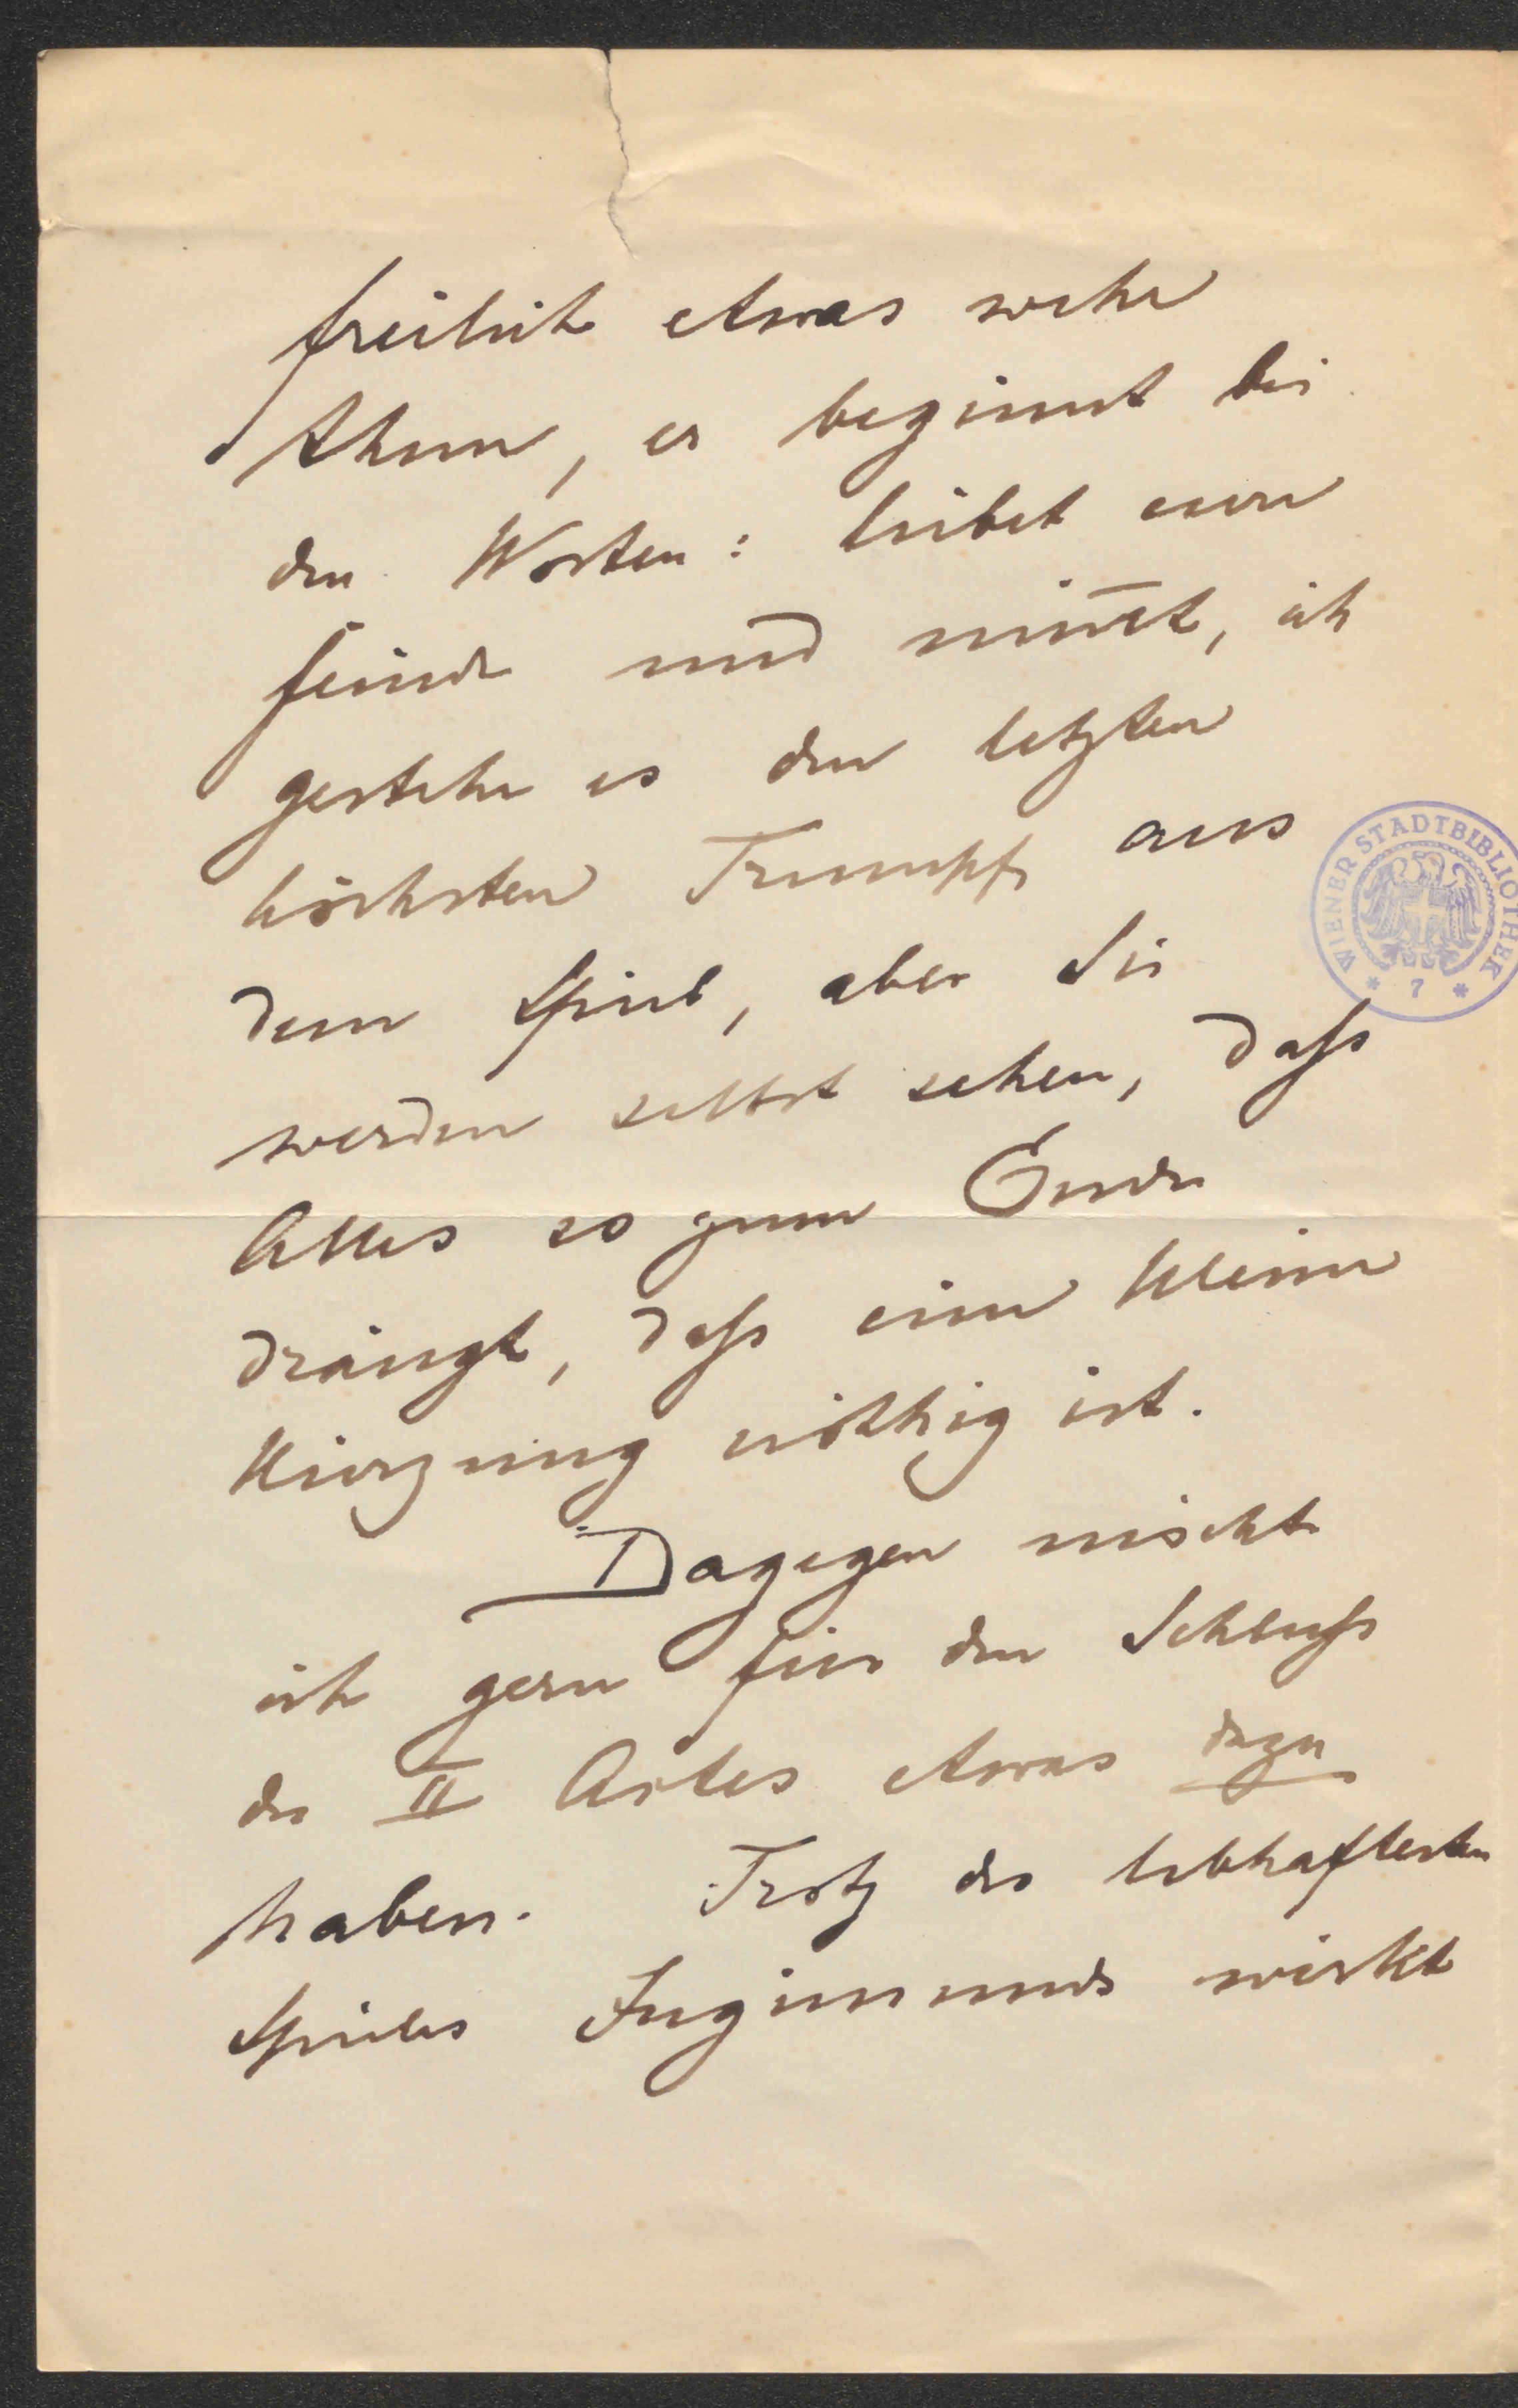 freilich etwas wehe
thun, er beginnt bei
den Worten: liebet eure
feinde und nim̅t, ich
gestehe es den letzten
höchsten Trumpf aus
dem Spiel, aber Sie
werden selbst sehen, daſs
Alles so zum Ende
drängt, daſs eine kleine
Kürzung nöthig ist.
Dagegen möchte
ich gern für den Schluſs
des II Actes etwas dazu
haben. Trotz des lebhaftesten
Spieles Ingimunds wirkt
WIENER STADTBIBLIOTHEK
* 7 *